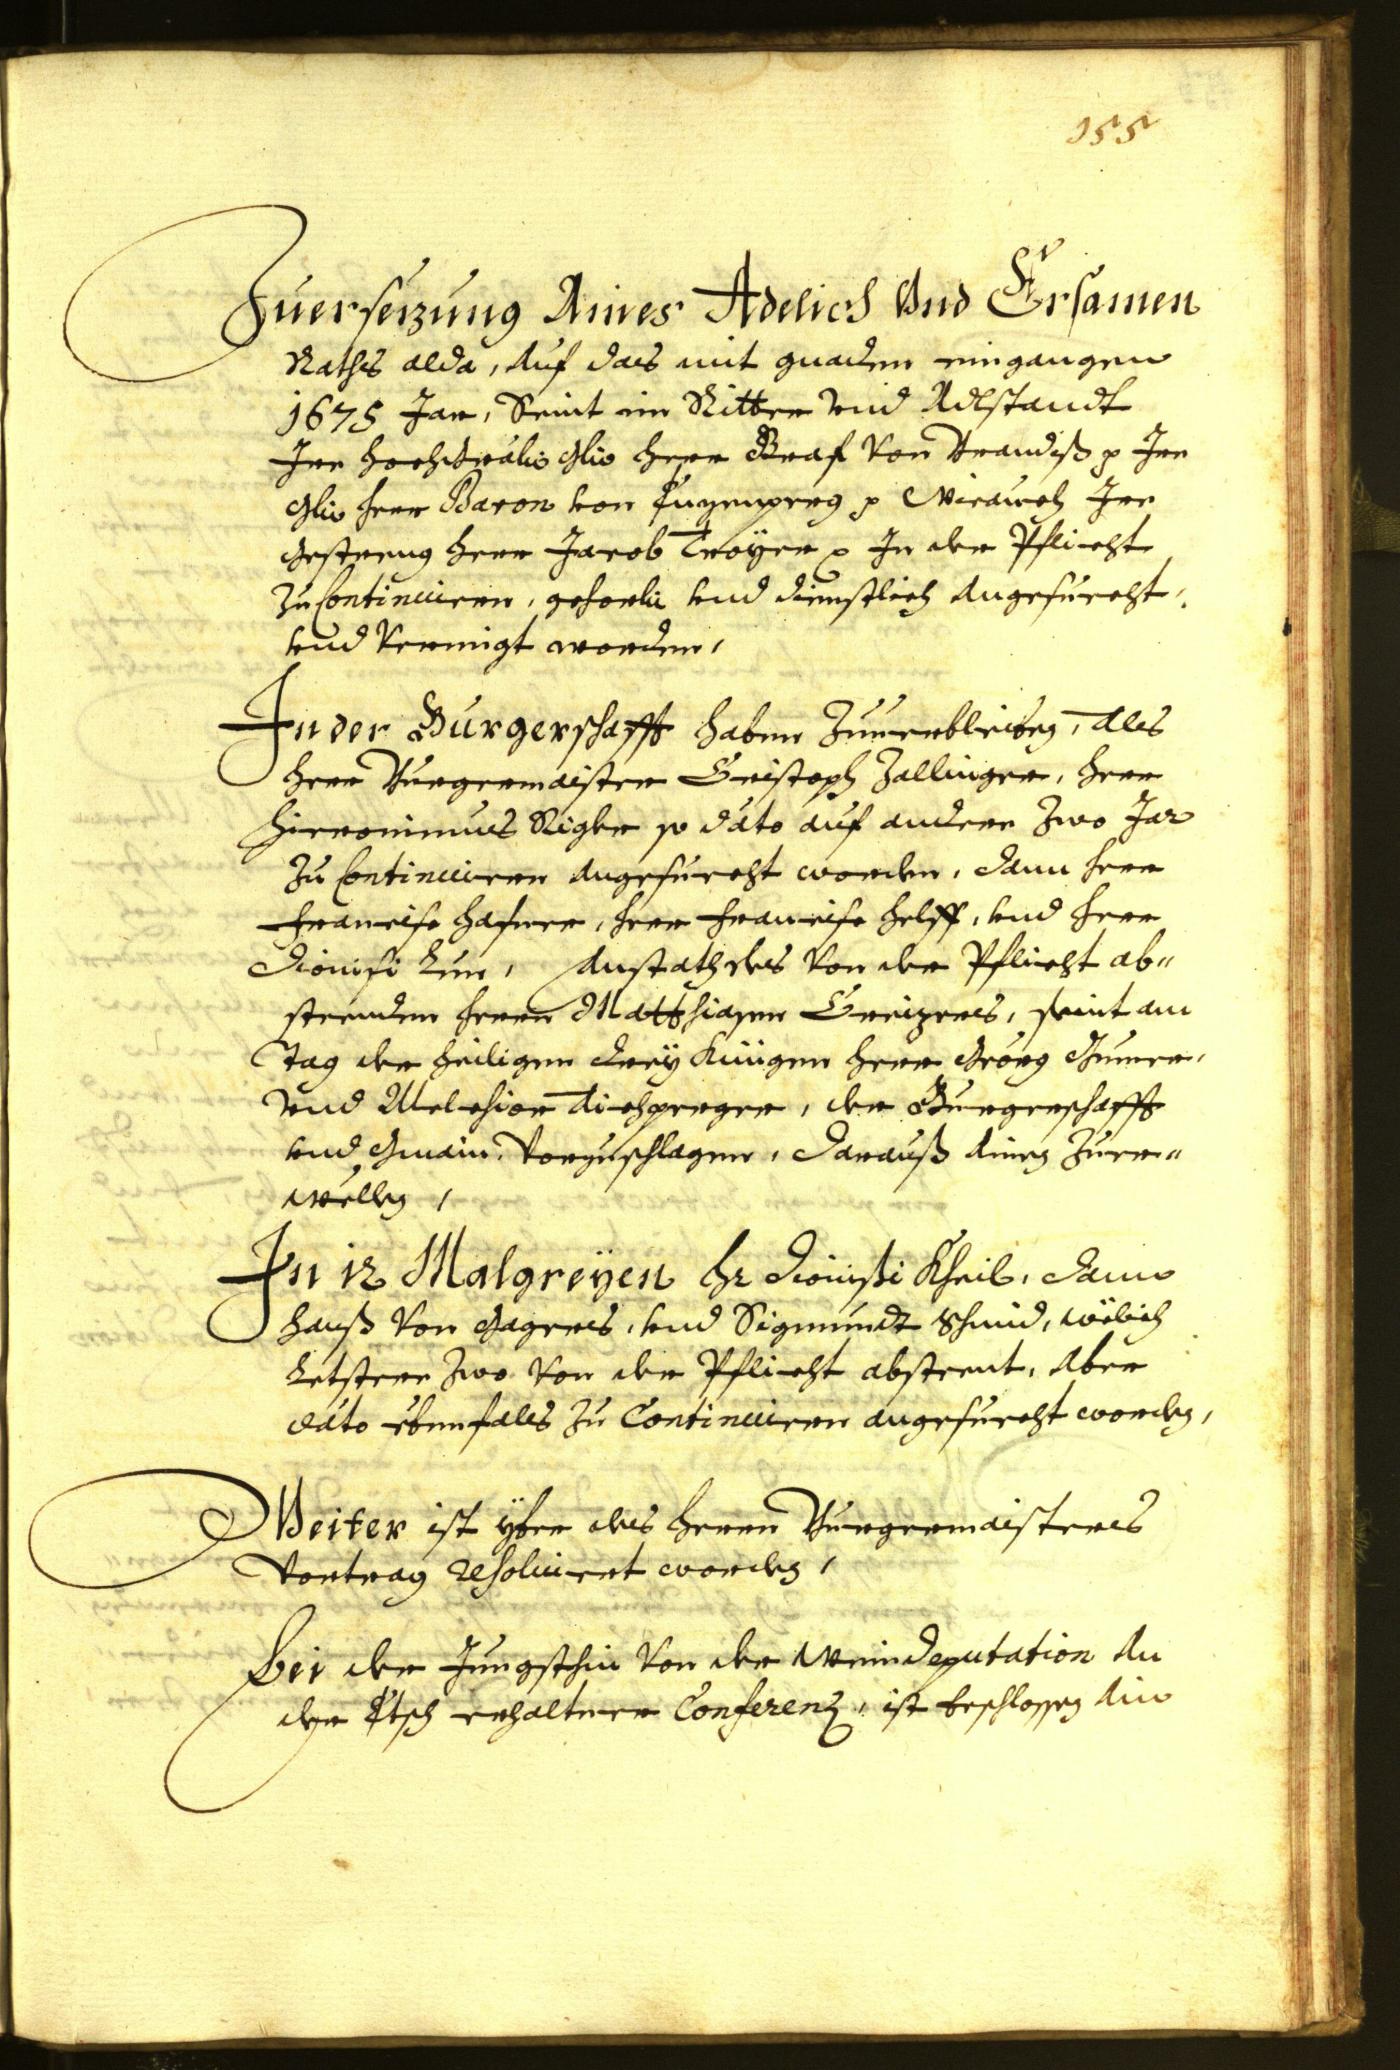 155
Zuersezung Aines Adelich Und Ersamen
Raths alda, Auf das mit gnaden eingangen
1675 Jar, Seint im Ritter vnd Adlstandt
Ir hochgräflich Herr Graf von Brandiß p Ir
Herr Baron von p Ir
Gestreng Herr Jacob Troÿer p In der Pflicht
zu Continuiren, und dienstlich Angesuecht,
und Vermigt worden,
In der Burgerschafft haben Zuuerbleiben, Als
Herr Burgermaister Cristoph Zallinger, Herr
Hieronimus so dato auf andere zwo Jar
zu Continuiren Angesuecht worden, dann Herr
Francisc Hafner, Herr Francisc Helff, und Herr
Dionisi Anstath des Von der Pflicht ab-
steenden Herrn Matthiasen seint am
Tag der heiligen dreÿ Künigen Herr Georg
vnd Melchior der Burgerschafft
und Gmain, Vorzuschlagen, darauß Ainen Zuer-
wellen,
In iz Malgreÿen Hr Dionisi Kheil, dann
Hanß Von und Sigmundt Schmid, wölich
letstere zwo von der Pflicht abstent, Aber
dato ebenfals zu Continuiren angesuecht worden,
Weiter ist yber des Herrn Burgermaisters
Vortrag resoluiert worden,
Bei der Jungsthin Von der Weindeputation An
der Etsch erhaltner Conferenz, ist beschlossen Ain